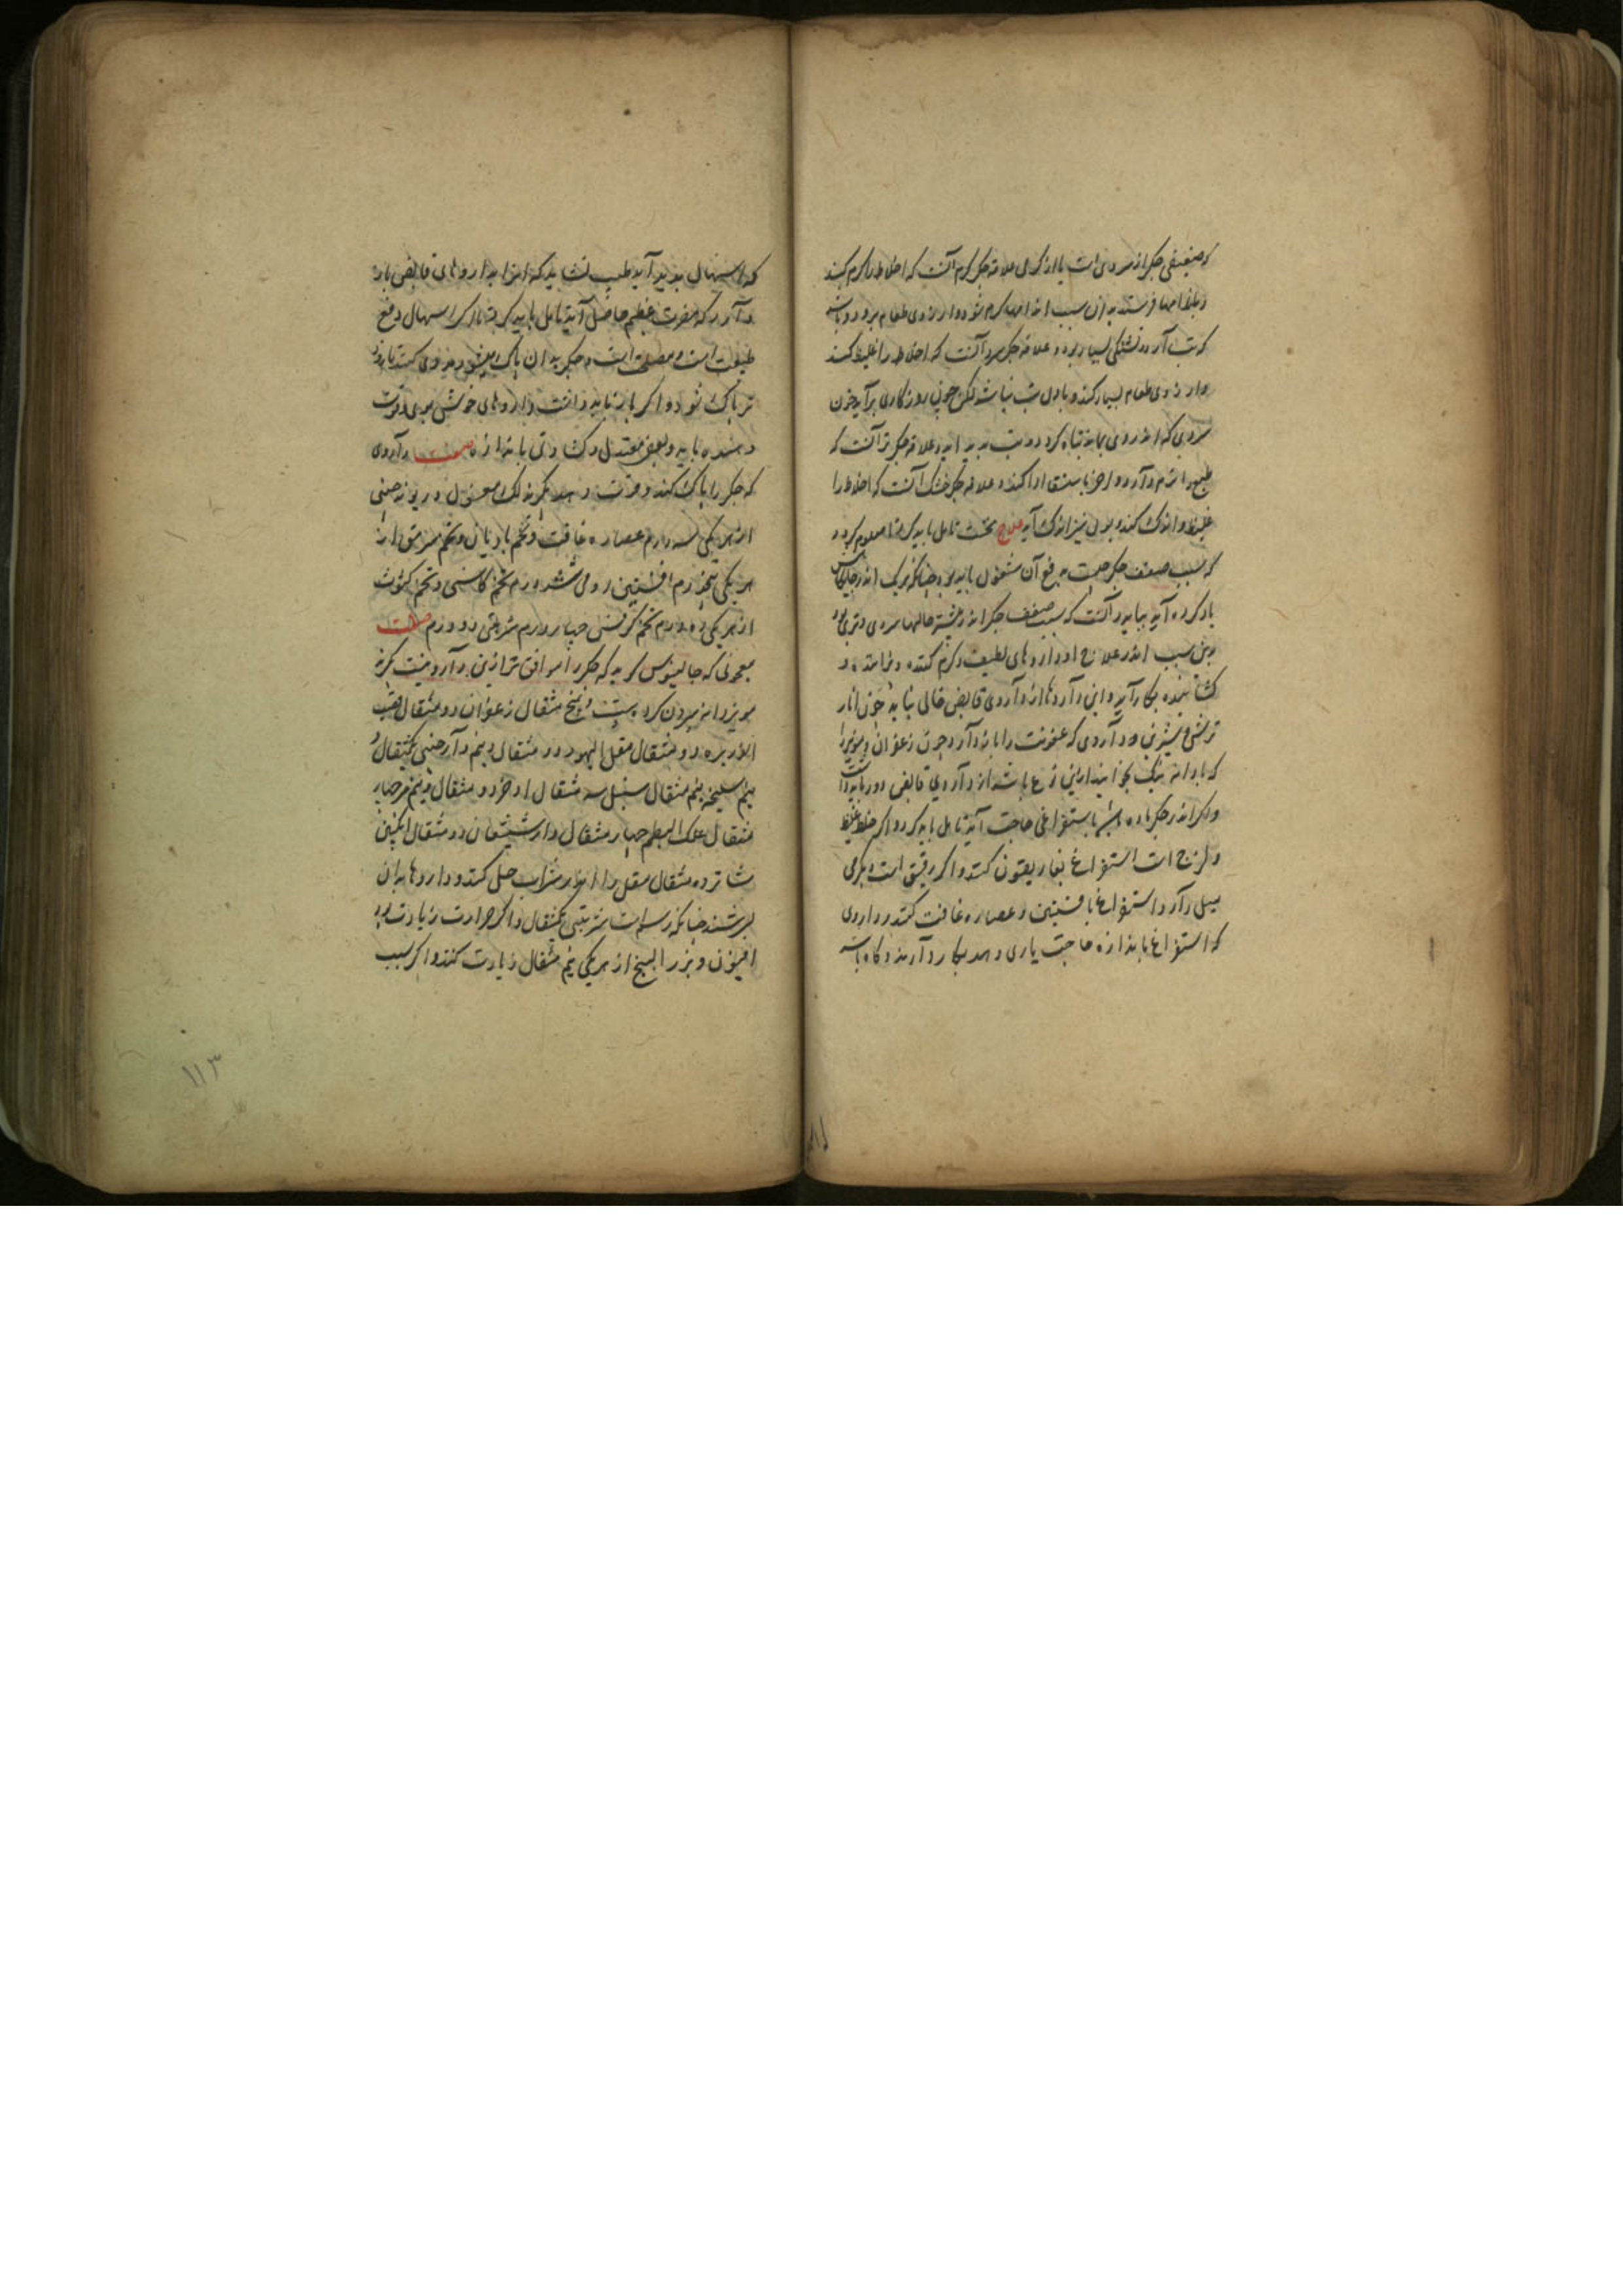 که ضعیفی جگر از سردی است یا از گرمی علامة جگر گرم آنست که اخلاط را گرم کند
و باندامها فرستد بدان سبب اندامها گرم شود و ارزوی طعام ببرد و باشد
که تب آرد و تشنگی بسیار بود و علامة جگر سرد آنست که اخلاط را غلیظ کند
و ارزوی طعام بسیار کند و باول تب نباشد لکن چون روزکاری برآید خون
سردی که اندروی بماند تباه کردد و تب بدید اید و علامة جگر تر آنست که
طبع را نرم دارد و علامة جگر خشک آنست که اخلاط را
غلیظ و اندک کند و بول نیز اندک آید علاج نخست تامل باید کرد تا معلوم کردد
که سبب ضعف جگر چیست بدفع آن مشغول باید بود چنانکه هر یک اندر جایگاهش
یاد کرده آید بباید دانست که سبب ضعف جگر اندر بیشتر حالها سردی و تری بود
بدین سبب اندر علاج او داروهای لطیف و گرم کننده و زاینده و
گشاینده بکار آید و این داروها از داروی قابض خالی نباید چون انار
ترش و شیرین و داروی که عفونت را باز دارد چون زعفران و مویز را
که با دانه نیک بخایند ازین نوع باشد از داروی قابض دور باید داشت
و اکر اندر جگر ماده باشد باستفراغی حاجت آید تامل باید کرد و اکر خلط غلیظ
و لزج است استفراغ بغاریقون کنند و اکر رقیق است و بگرمی
میل دارد استفراغ بافسنتین و عصاره غافت کنند و داروی
که استفراغ باندازه حاجت یاری دهد بکار دارند و گاه باشد
که اسهال بدید آید طبیب نشاید که انرا بداروهای قابض باز
دارد که مضرت عظیم حاصل آید تامل باید کرد تا اکر اسهال دفع
طبیعت است و مصلحت است و جگر بدان پاک میشود مددی کنند تا زود
تر پاک شود و اکر باز باید داشت داروهای خوش بوی و قوت
دهنده باید و بعض معتدل و گشادنی باندازه صفت داروی
که جگر را پاک کند و قوت دهد بگیرند لک مغسول و ریوند چینی
از هر یکی سه درم عصاره غافت و تخم بادیان و تخم سرمق از
هر یکی پنجدرم افسنتین رومی شش درم تخم کاسنی و تخم کثوث
از هر یکی ده درم تخم کرفس چهار درم شربتی دو درم صفت
معجونی که جالینوس گوید که جگر را موافق تر ازین دارو نیست بگیرند
مویز دانه بیرون کرده بیست و پنج مثقال زعفران دو مثقال قصب
الذریره دو مثقال مقل الیهود دو مثقال و نیم دارچینی یکمثقال و
نیم سلیخه نیم مثقال سنبل سه مثقال اذخر دو مثقال و نیم مر چهار
مثقال علک البطم چهار مثقال دارشیشعان دو مثقال انگبین
شانزده مثقال مقل را اندر شراب حل کنند و داروها بدان
بسرشند چنانکه رسم است شربتی یکمثقال و اکر حرارت زیادت بود
افیون و بزر البنج از هر یکی نیم مثقال زیادت کنند و اکر سبب
۱۱۳